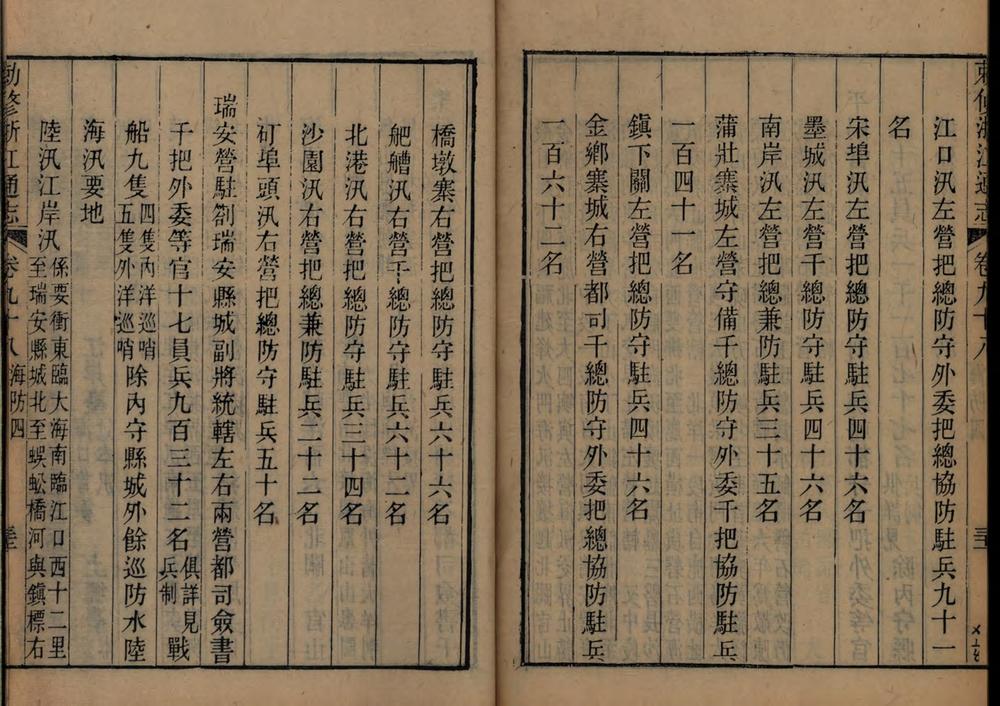 江口汛左營把總防守外委把總協防駐兵九十一
名
宋埠汛左營把總防守駐兵四十六名
墨城汛左營千總防守駐兵四十六名
南岸汛左營把總兼防駐兵三十五名
蒲壯寨城左營守備千總防守外委千把協防駐兵
一百四十一名
鎮下關左營把總防守駐兵四十六名
金鄉寨城右營都司千總防守外委把總協防駐兵
一百六十二名
橋墩寨右營把總防守駐兵六十六名
舥艚汛右營千總防守駐兵六十二名
北港汛右營把總防守駐兵三十四名
沙園汛右營把總兼防駐兵二十二名
矴埠頭汛右營把總防守駐兵五十名
瑞安營駐劄瑞安縣城副將統轄左右兩營都司僉書
千把外委等官十七員兵九百三十二名俱詳見兵制戰
船九隻四隻內洋巡哨五隻外洋巡哨除內守縣城外餘巡防水陸
海汛要地
陸汛江岸汛係要衝東臨大海南臨江口西十二里至瑞安縣城北至蜈蚣橋河與鎮標右
勅修浙江通志 卷九十八 海防四